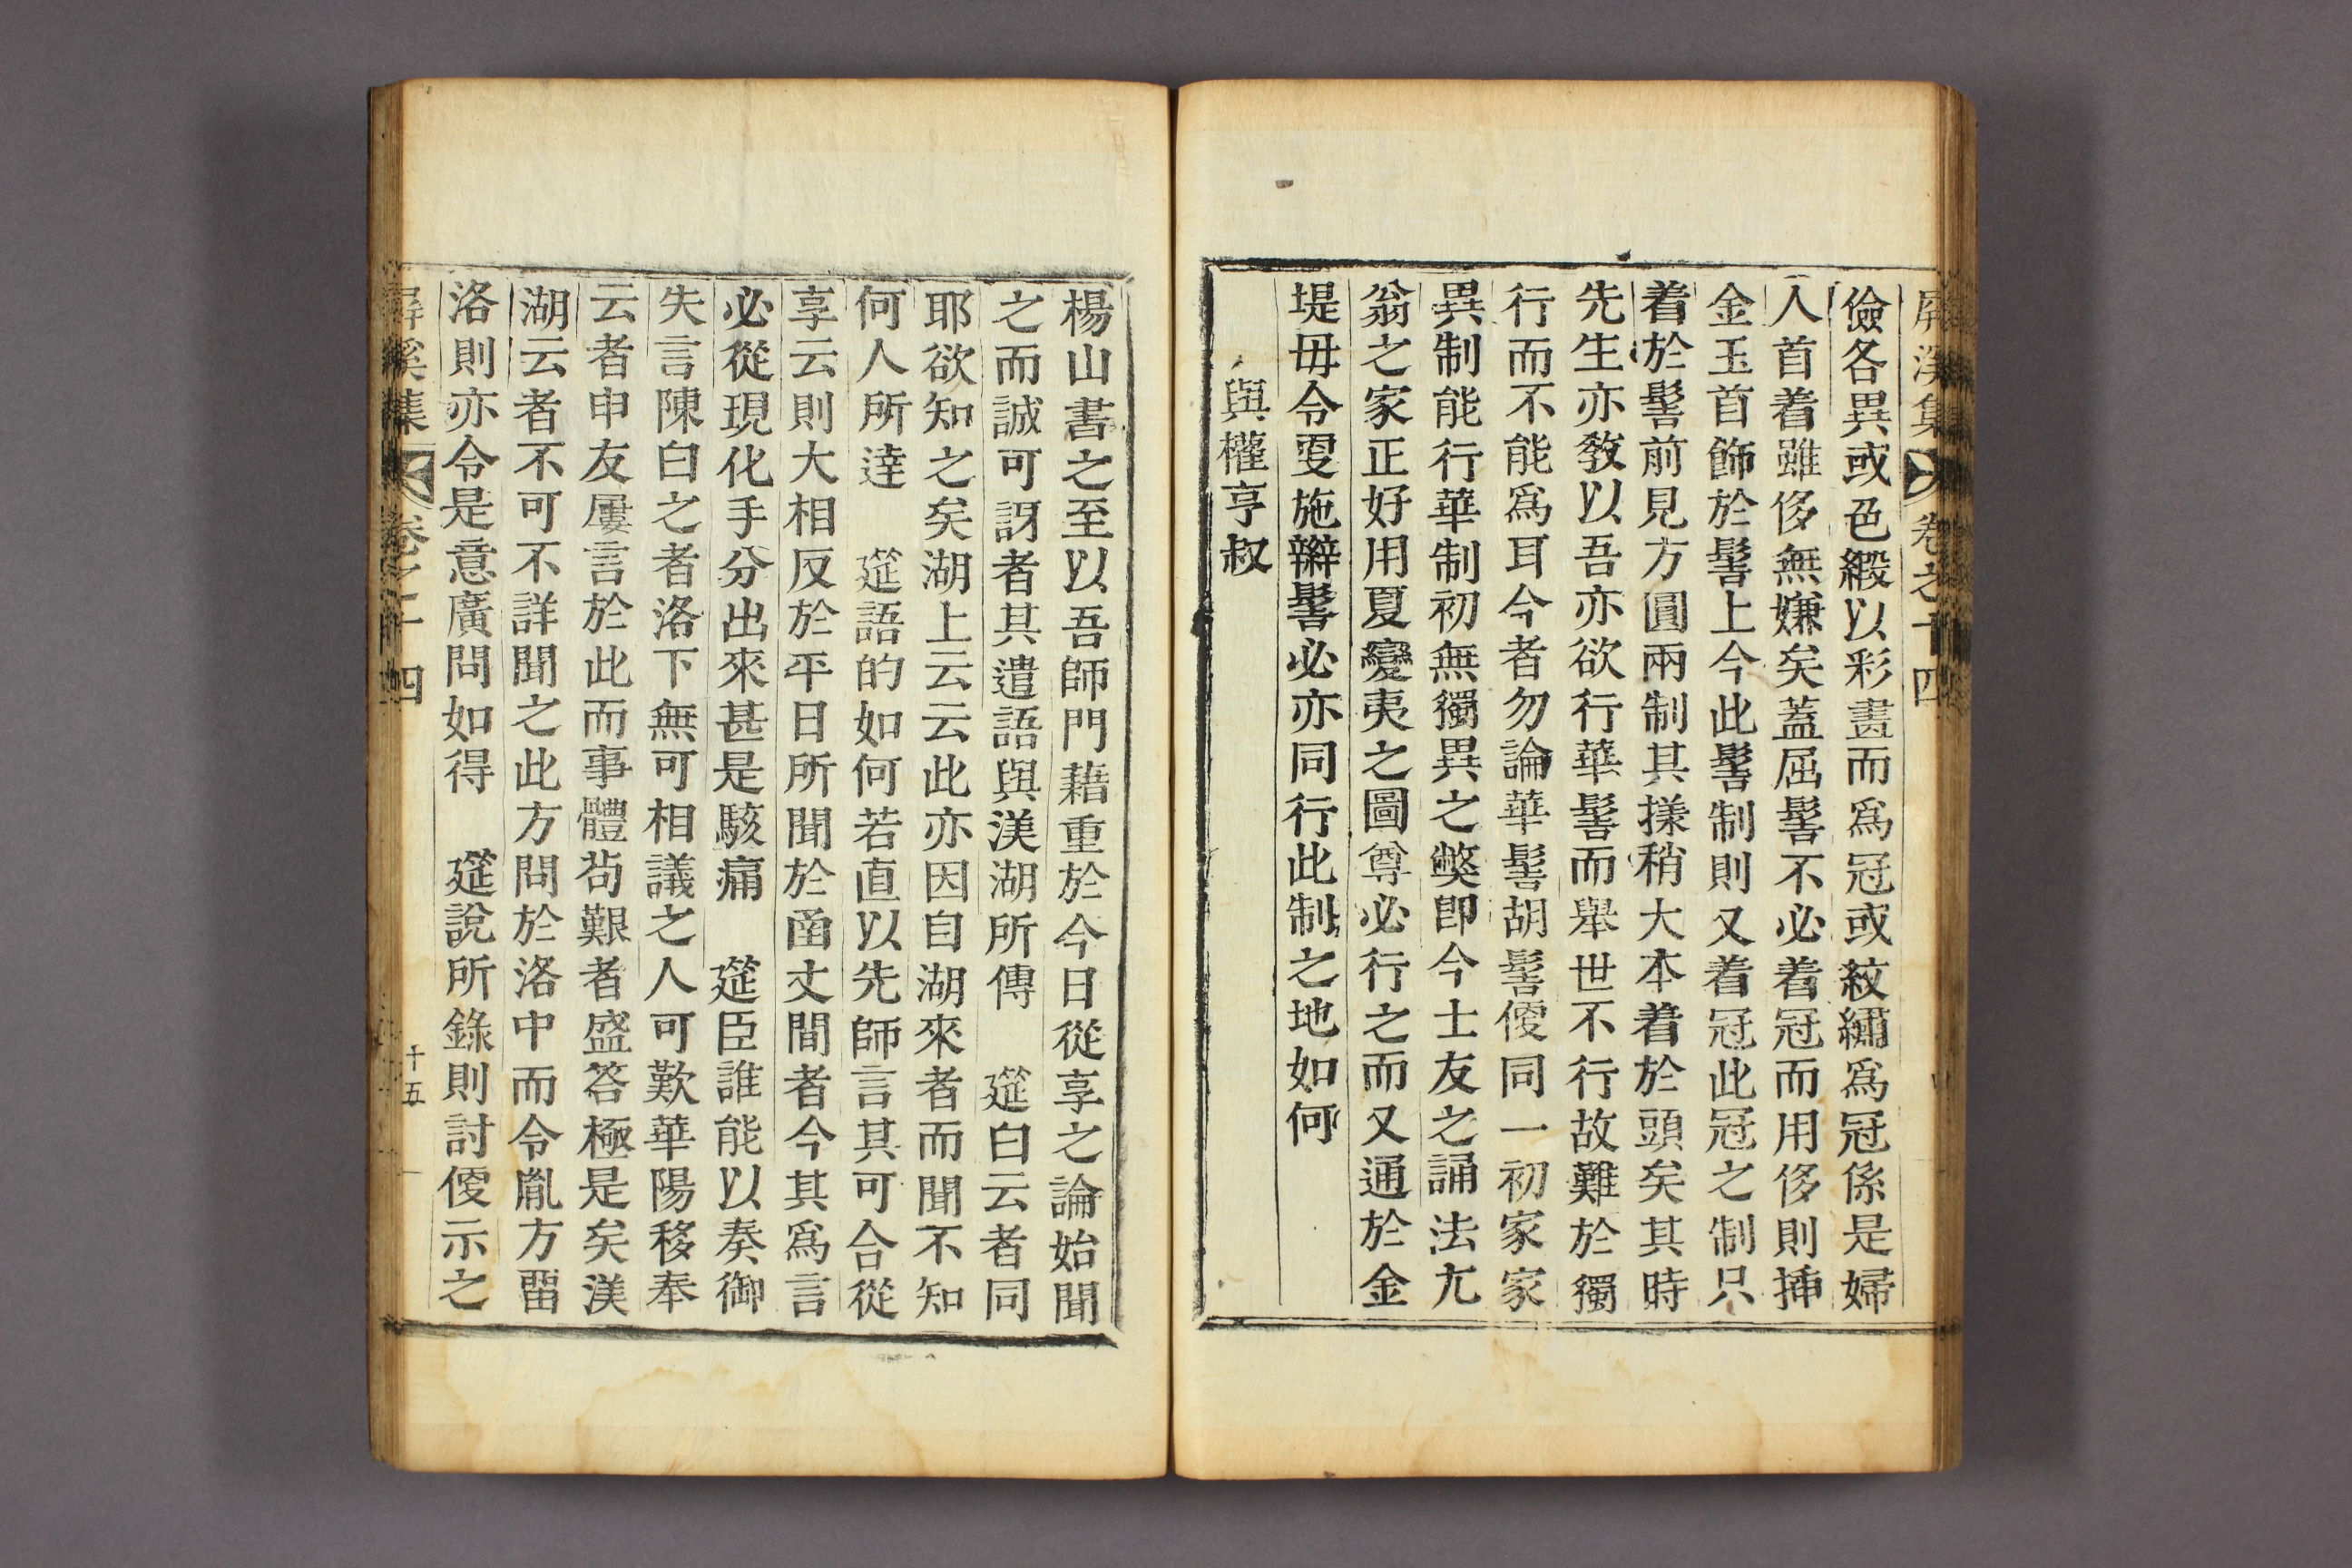 屛溪集 卷之十四
儉各異或色緞以彩畵而爲冠或紋繡爲冠係是婦
人首着雖侈無嫌矣蓋屈髻不必着冠而用侈則揷
金玉首飾於髻上今此髻制則又着冠此冠之制只
着於髻前見方圓兩制其㨾稍大本着於頭矣其時
先生亦敎以吾亦欲行華髻而舉世不行故難於獨
行而不能爲耳今者勿論華髻胡髻便同一初家家
異制能行華制初無獨異之獘卽今士友之誦法尤
翁之家正好用夏變夷之圖尊必行之而又通於金
堤毋令更施辮髻必亦同行此制之地如何
與權亨叔
楊山書之至以吾師門藉重於今日從享之論始聞
之而誠可訝者其遣語與渼湖所傳 筵白云者同
耶欲知之矣湖上云云此亦因自湖來者而聞不知
何人所達 筵語的如何若直以先師言其可合從
享云則大相反於平日所聞於凾丈間者今其爲言
必從現化手分出來甚是駭痛 筵臣誰能以奏御
失言陳白之者洛下無可相議之人可歎華陽移奉
云者申友屢言於此而事體尙艱者盛答極是矣渼
湖云者不可不詳聞之此方問於洛中而令胤方留
洛則亦令是意廣問如得 筵說所錄則討便示之
屛溪集 卷之十四 十五